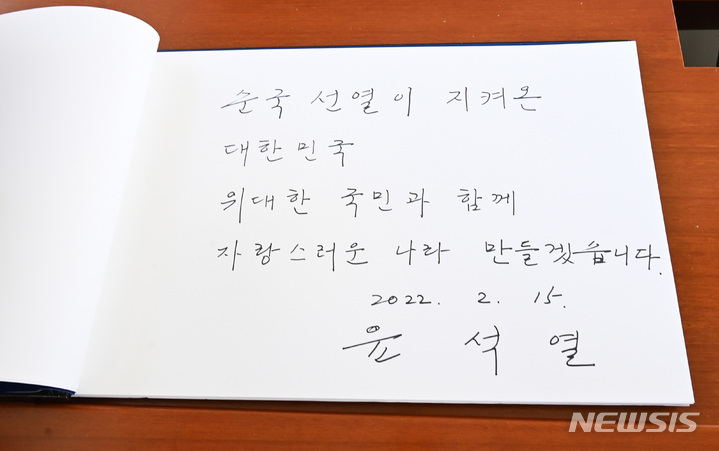 순국 선열이 지켜온
대한민국
위대한 국민과 함께
자랑스러운 나라 만들겠습니다.
2022. 2. 15.
윤 석 열
NEWSIS